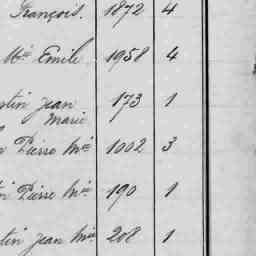 François. 1872 4
Mie Emile 1958 4
stin Jean 173 1
Marie
Pierre Mie 1002 3
Pierre Mie 190 1
tin Jean Mie 208 1